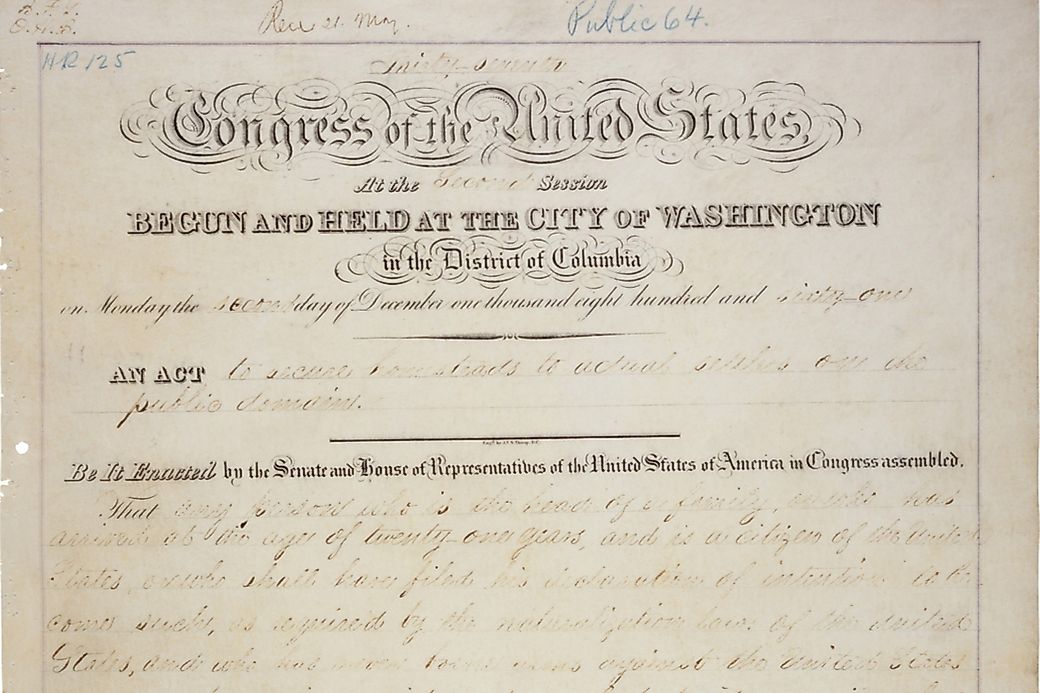 Rec 21 May.
Public 64.
HR 125
Thirty-seventh
Congress of the United States,
At the Second Session
BEGUN AND HELD AT THE CITY OF WASHINGTON
in the District of Columbia
on Monday the second day of December one thousand eight hundred and sixty-one
AN ACT to secure homesteads to actual settlers on the
public domain.
Be It Enacted by the Senate and House of Representatives of the United States of America in Congress assembled,
That any person who is the head of a family, or who has
arrived at the age of twenty-one years, and is a citizen of the United
States, or who shall have filed his declaration of intention to be
come such, as required by the naturalization laws of the United
States, and who has never borne arms against the United States